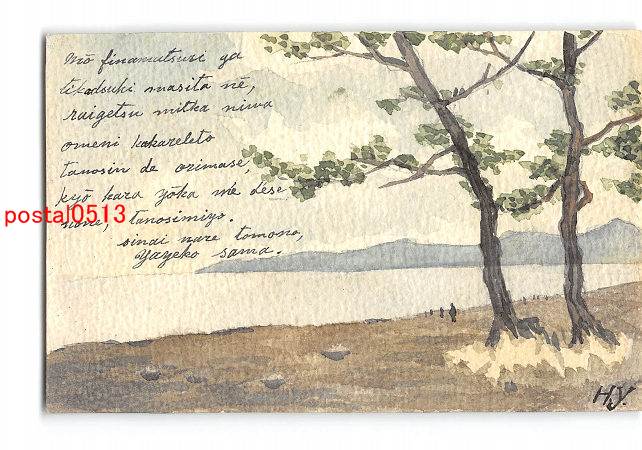 Mō finamatsuri ga
tikadsuki masita nē,
raigetsu mitka niwa
omeni kakareleto
tanosin de orimase,
kyō kara yōka me desene
none, tanosimiyo.
sinai nare tomono,
Yayeko sama.
postaj0513
H.Y.